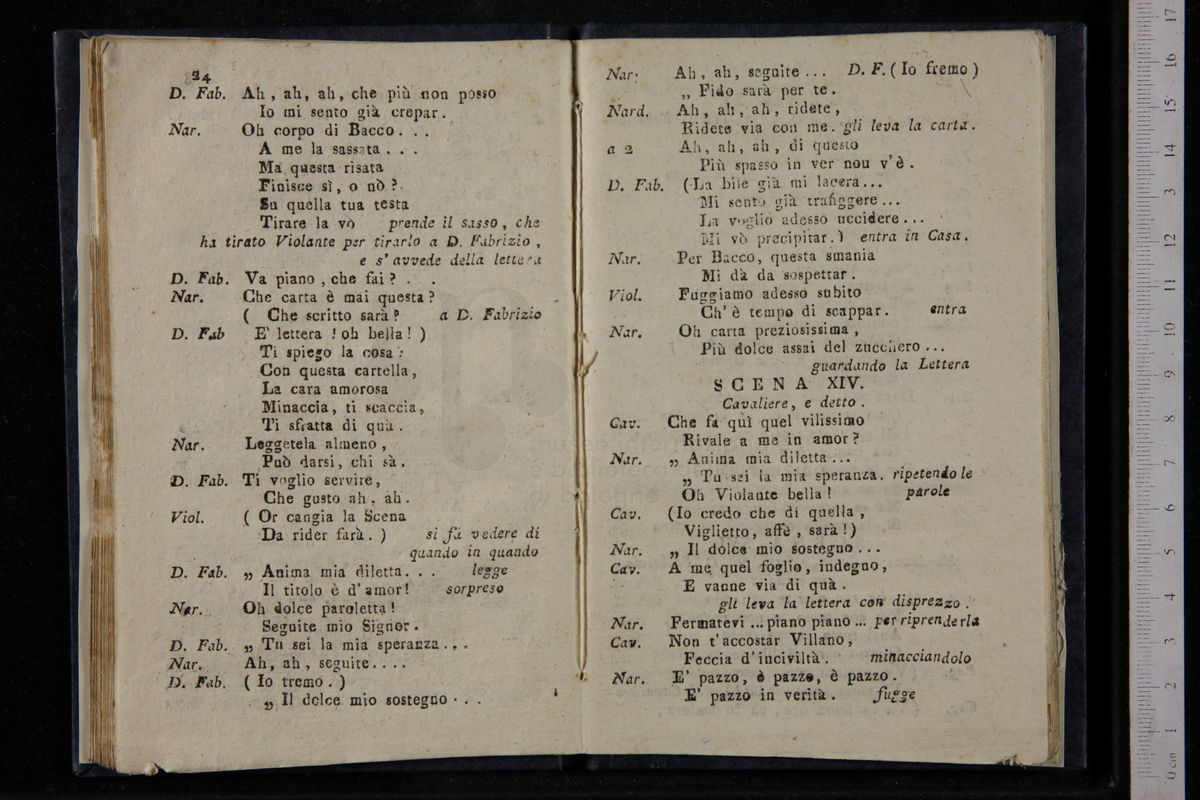 24
D. Fab. Ah, ah, ah, che più non posso
Io mi sento già crepar.
Nar. Oh corpo di Bacco. . .
A me la sassata . . .
Ma questa risata
Finisce sì, o nò?
Su quella tua testa
Tirare la vò prende il sasso, che
ha tirato Violante per tirarlo a D. Fabrizio,
e s' avvede della lettera
D. Fab. Va piano, che fai? . .
Nar. Che carta è mai questa?
( Che scritto sarà? a D. Fabrizio
D. Fab E' lettera ! oh bella! )
Ti spiego la cosa:
Con questa cartella,
La cara amorosa
Minaccia, ti scaccia,
Ti sfratta di quà.
Nar. Leggetela almeno,
Può darsi, chi sà.
D. Fab. Ti voglio servire,
Che gusto ah, ah.
Viol. ( Or cangia la Scena
Da rider farà. ) si fà vedere di
quando in quando
D. Fab. „ Anima mia diletta. . . legge
Il titolo è d'amor! sorpreso
Nar. Oh dolce paroletta!
Seguite mio Signor.
D. Fab. „ Tu sei la mia speranza...
Nar. Ah, ah, seguite....
D. Fab. ( Io tremo. )
„ Il dolce mio sostegno . . .
Nar. Ah, ah, seguite ... D. F. ( Io fremo )
„ Fido sarà per te.
Nard. Ah, ah, ah, ridete,
Ridete via con me. gli leva la carta.
a 2 Ah, ah, ah, di questo
Più spasso in ver nou v'è.
D. Fab. ( La bile già mi lacera...
Mi sento già trafiggere...
La voglio adesso uccidere...
Mi vò precipitar.) entra in Casa.
Nar. Per Bacco, questa smania
Mi dà da sospettar.
Viol. Fuggiamo adesso subito
Ch' è tempo di scappar. entra
Nar. Oh carta preziosissima,
Più dolce assai del zucchero...
guardando la Lettera
SCENA XIV.
Cavaliere, e detto.
Cav. Che fa quì quel vilissimo
Rivale a me in amor?
Nar. „ Anima mia diletta...
„ Tu sei la mia speranza. ripetendo le
Oh Violante bella! parole
Cav. (Io credo che di quella,
Viglietto, affè, sarà!)
Nar. „ Il dolce mio sostegno...
Cav. A me quel foglio, indegno,
E vanne via di quà.
gli leva la lettera con disprezzo.
Nar. Fermatevi ... piano piano ... per riprenderla
Cav. Non t'accostar Villano,
Feccia d'inciviltà. minacciandolo
Nar. E' pazzo, è pazzo, è pazzo.
E' pazzo in verità. fugge
0 cm 1 2 3 4 5 6 7 8 9 10 11 12 13 14 15 16 17